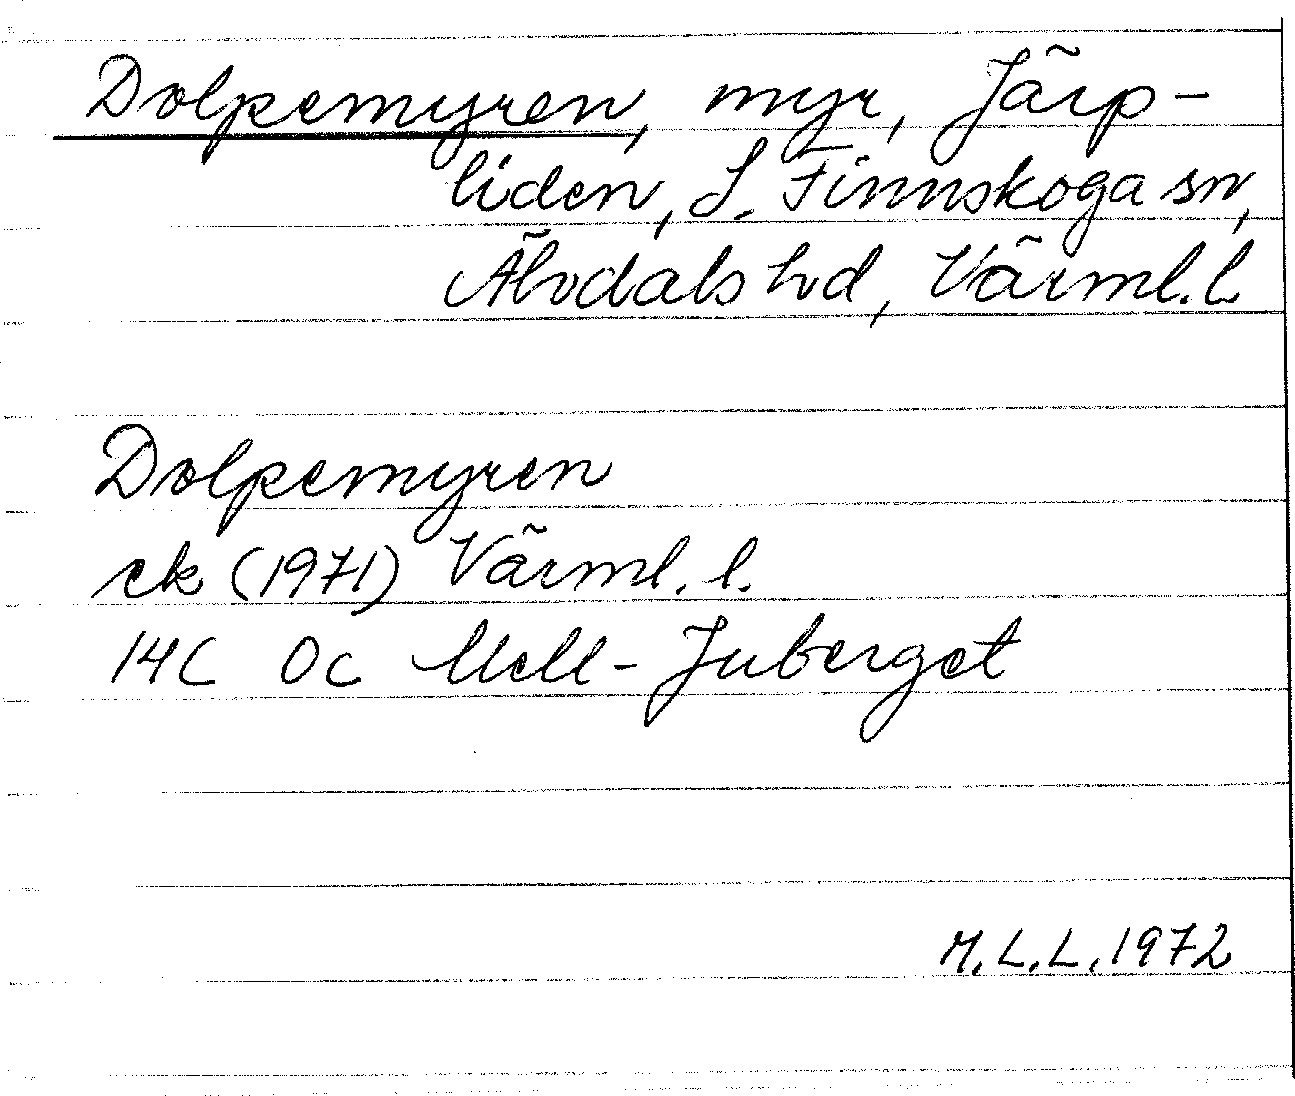 Dolpemyren, myr, Järp-
liden, S. Finnskoga sn,
Älvdals hd, Värml. l.
Dolpemyren
ek (1971) Värml. l.
14C 0c Mell-Juberget
M.L.L. 1972